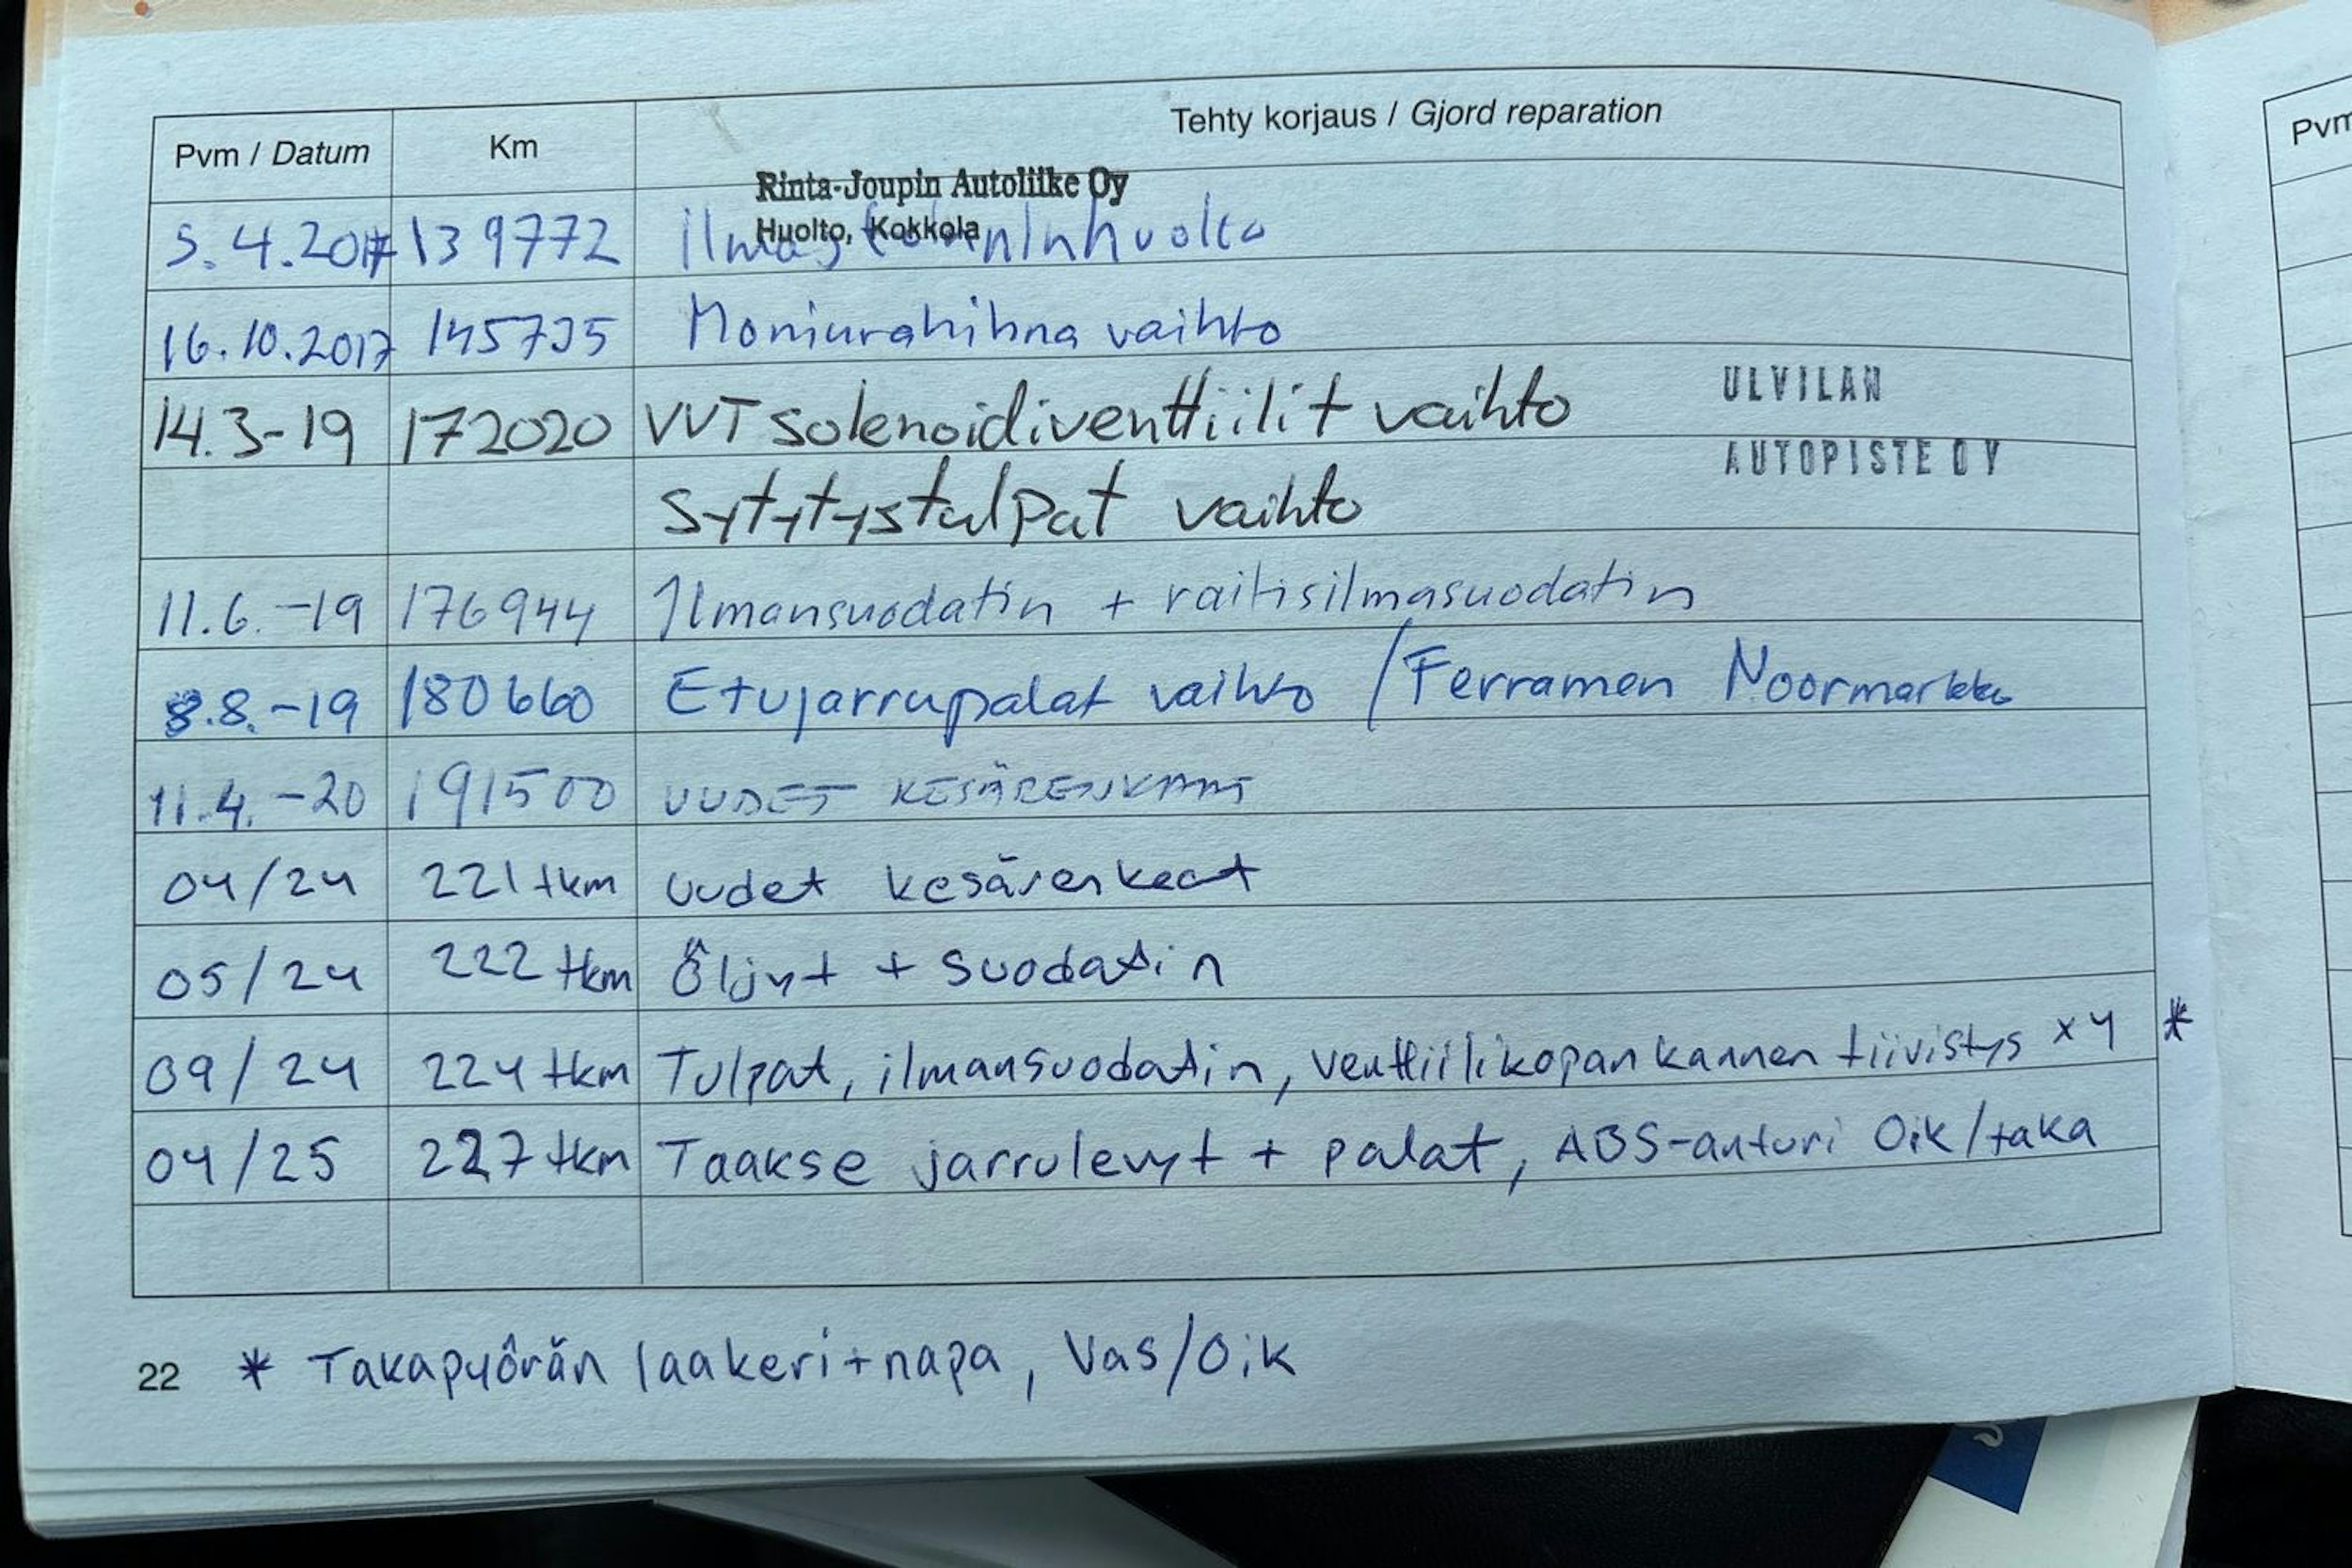 Tehty korjaus / Gjord reparation
Pvm / Datum Km
Rinta-Joupin Autoliike Oy
Huolto, Kokkola
5.4.2017 139772 Ilmastoinninhuolto
16.10.2017 145735 Moniurahihna vaihto
ULVILAN
14.3-19 172020 VVT solenoidiventtiilit vaihto
AUTOPISTE OY
Sytytystulpat vaihto
11.6.-19 176944 Ilmansuodatin + raitisilmasuodatin
8.8.-19 180660 Etujarrupalat vaihto / Ferramen Noormarkku
11.4.-20 191500 UUDET KESÄRENKAAT
04/24 221 tkm Uudet kesärenkaat
05/24 222 tkm Öljyt + suodatin
09/24 224 tkm Tulpat, ilmansuodatin, venttiilikopan kannen tiivistys x4 *
04/25 227 tkm Taakse jarrulevyt + palat, ABS-anturi Oik/taka
22 * Takapyörän laakeri+napa, Vas/Oik
Pvm